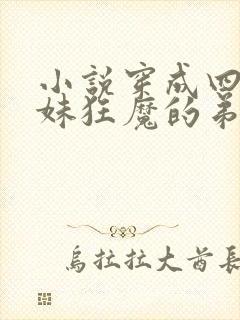 小說穿成四
妹狂魔的弟
烏拉拉大酋長